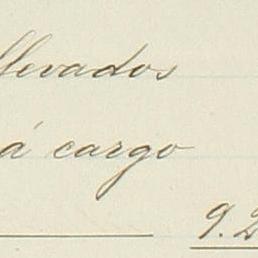 llevados
á cargo
9.2